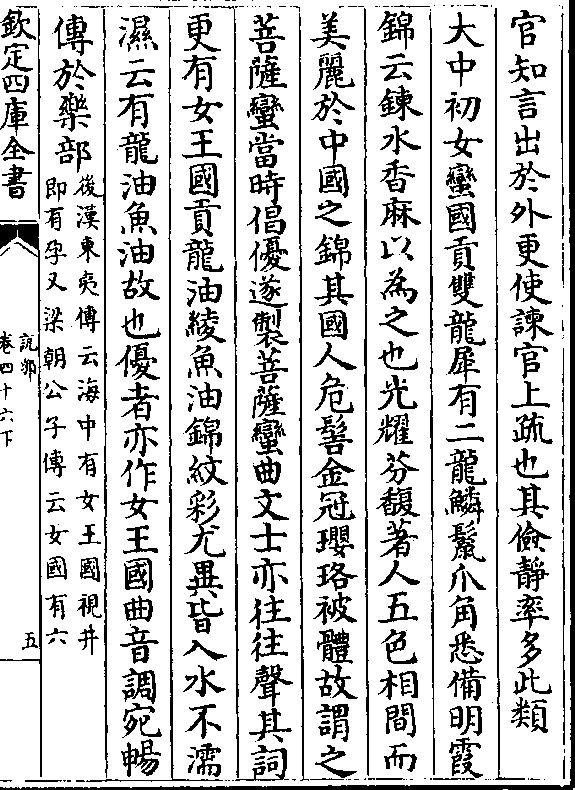 官知言出於外更使諫官上疏也其儉静率多此類
大中初女蠻國貢雙龍犀有二龍鱗鬛爪角悉備明霞
錦云鍊水香麻以為之也光耀芬馥著人五色相間而
美麗於中國之錦其國人危髻金冠瓔珞被體故謂之
菩薩蠻當時倡優遂製菩薩蠻曲文士亦往往聲其詞
更有女王國貢龍油綾魚油錦紋彩尤異皆入水不濡
濕云有龍油魚油故也優者亦作女王國曲音調宛暢
傳於樂部後漢東夷傳云海中有女王國視井
即有孕又梁朝公子傳云女國有六
欽定四庫全書
說郛
卷四十六下
五